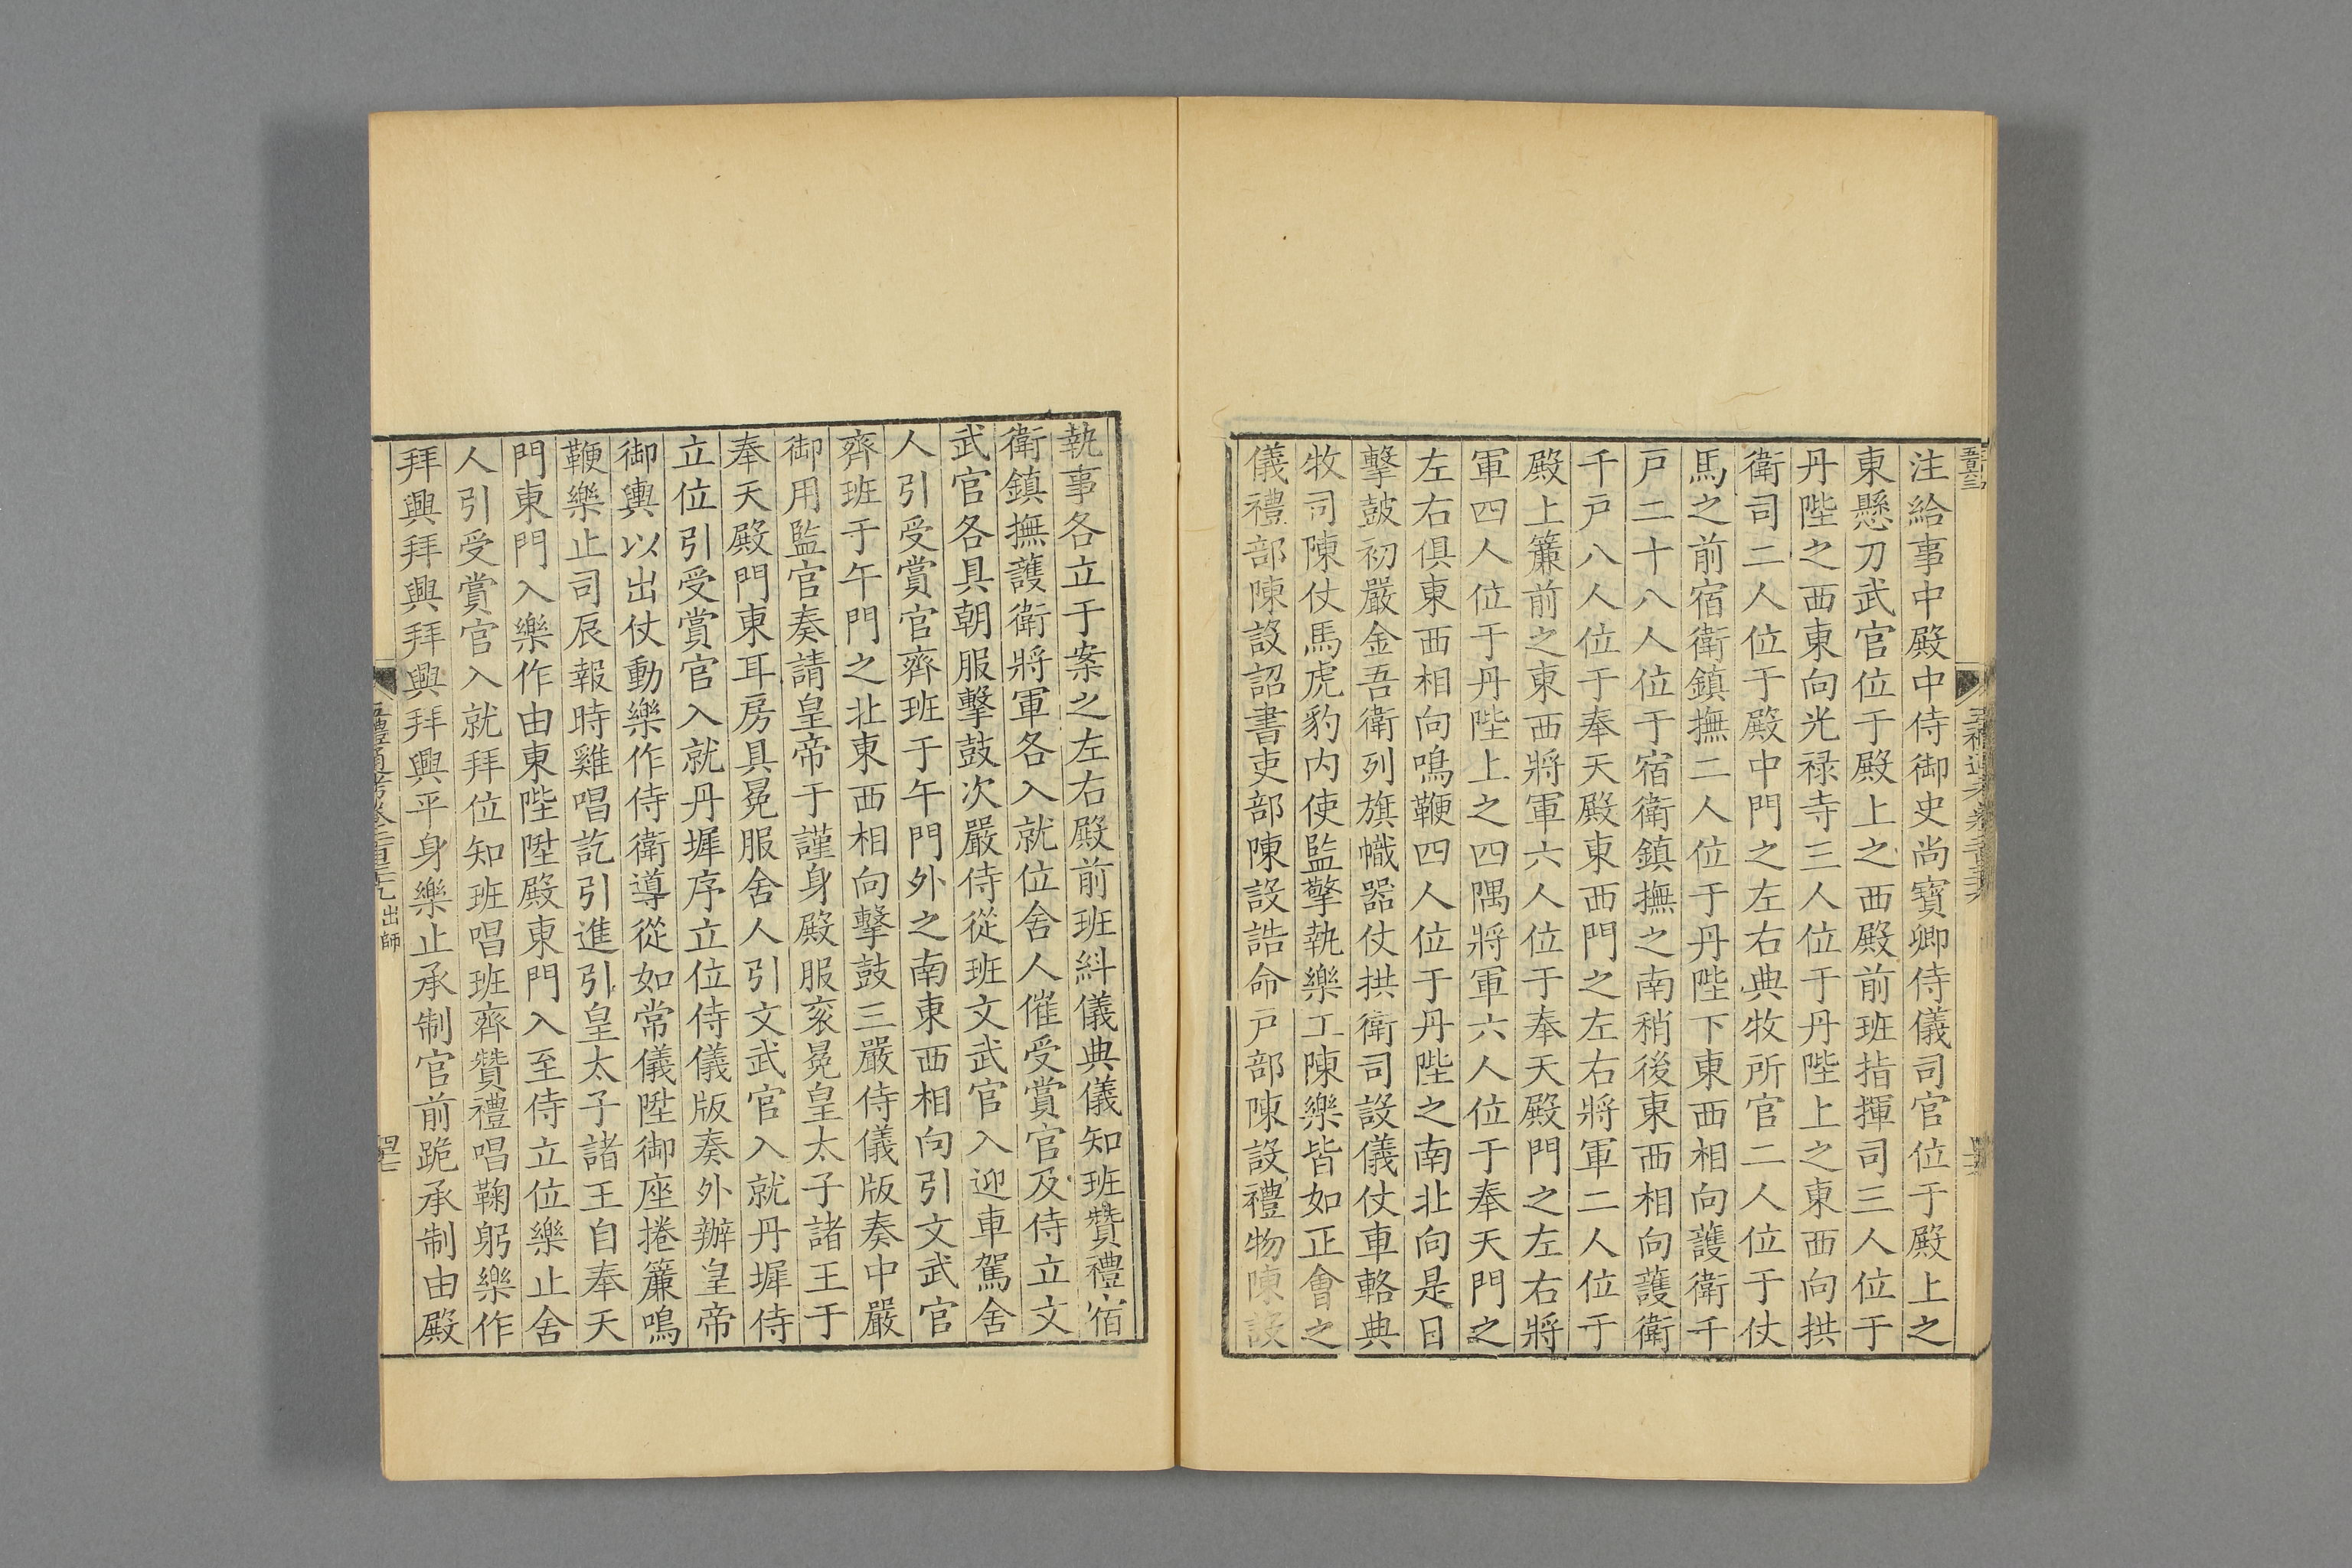 注給事中殿中侍御史尚寳卿侍儀司官位于殿上之
東懸刀武官位于殿上之西殿前班指揮司三人位于
丹陛之西東向光禄寺三人位于丹陛上之東西向拱
衛司二人位于殿中門之左右典牧所官二人位于仗
馬之前宿衛鎮撫二人位于丹陛下東西相向護衛千
戸二十八人位于宿衛鎮撫之南稍後東西相向護衛
千戸八人位于奉天殿東西門之左右將軍二人位于
殿上簾前之東西將軍六人位于奉天殿門之左右將
軍四人位于丹陛上之四隅將軍六人位于奉天門之
左右俱東西相向鳴鞭四人位于丹陛之南北向是日
擊鼓初嚴金吾衛列旗幟器仗拱衛司設儀仗車輅典
牧司陳仗馬虎豹内使監擎執樂工陳樂皆如正會之
儀禮部陳設詔書吏部陳設誥命戸部陳設禮物陳設
執事各立于案之左右殿前班糾儀典儀知班贊禮宿
衛鎮撫護衛將軍各入就位舍人催受賞官及侍立文
武官各具朝服擊鼓次嚴侍從班文武官入迎車駕舍
人引受賞官齊班于午門外之南東西相向引文武官
齊班于午門之北東西相向擊鼓三嚴侍儀版奏中嚴
御用監官奏請皇帝于謹身殿服衮冕皇太子諸王于
奉天殿門東耳房具冕服舍人引文武官入就丹墀侍
立位引受賞官入就丹墀序立位侍儀版奏外辦皇帝
御輿以出仗動樂作侍衛導從如常儀陞御座捲簾鳴
鞭樂止司辰報時雞唱訖引進引皇太子諸王自奉天
門東門入樂作由東陛陞殿東門入至侍立位樂止舍
人引受賞官入就拜位知班唱班齊贊禮唱鞠躬樂作
拜興拜興拜興拜興平身樂止承制官前跪承制由殿
五禮通考卷二百三十九 出師